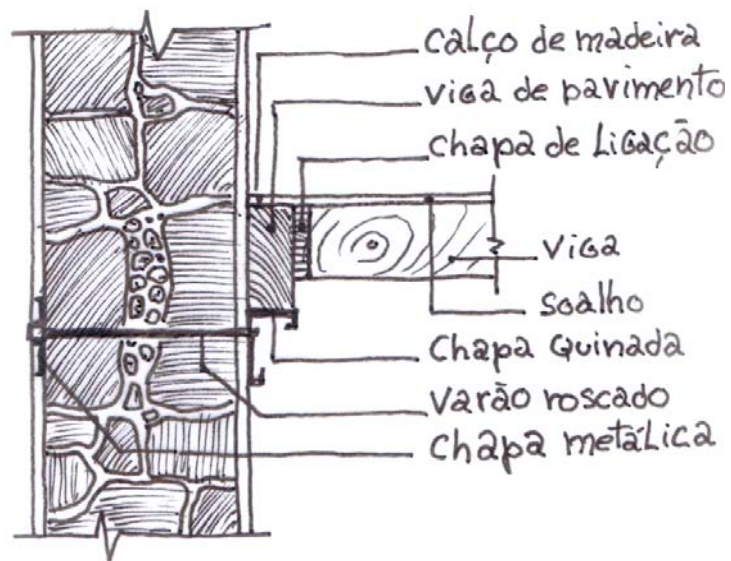 calço de madeira
viga de pavimento
chapa de Ligação
viga
soalho
chapa quinada
varão roscado
chapa metálica